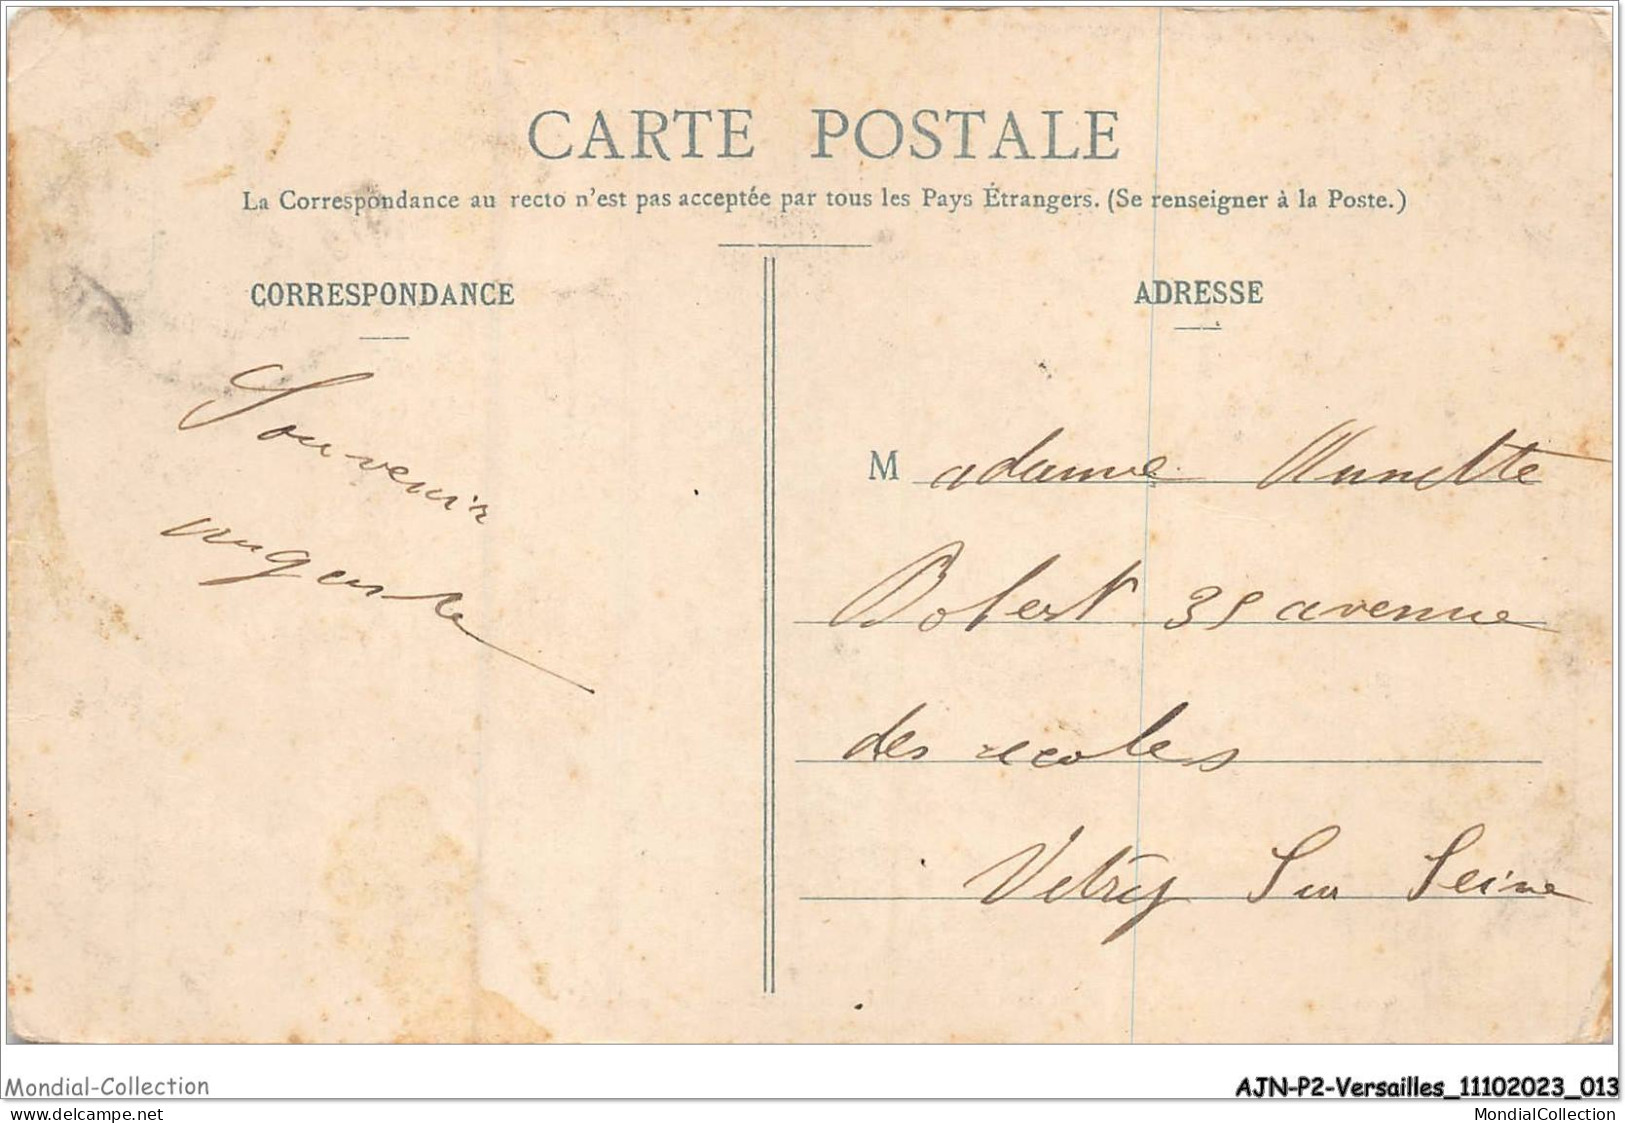 CARTE POSTALE
La Correspondance au recto n'est pas acceptée par tous les Pays Étrangers. (Se renseigner à la Poste.)
CORRESPONDANCE
Souvenir
auguste
ADRESSE
Madame Annette
35 avenue
des ecoles
Vitry Sur Seine
Mondial-Collection
AJN-P2-Versailles_11102023_013
www.delcampe.net
MondialCollection